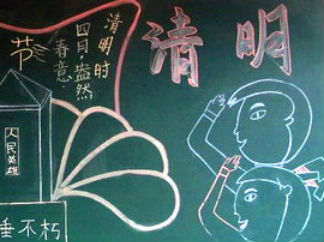 清明
节
清明时
四日，盎然
春意.
人民英雄
垂不朽